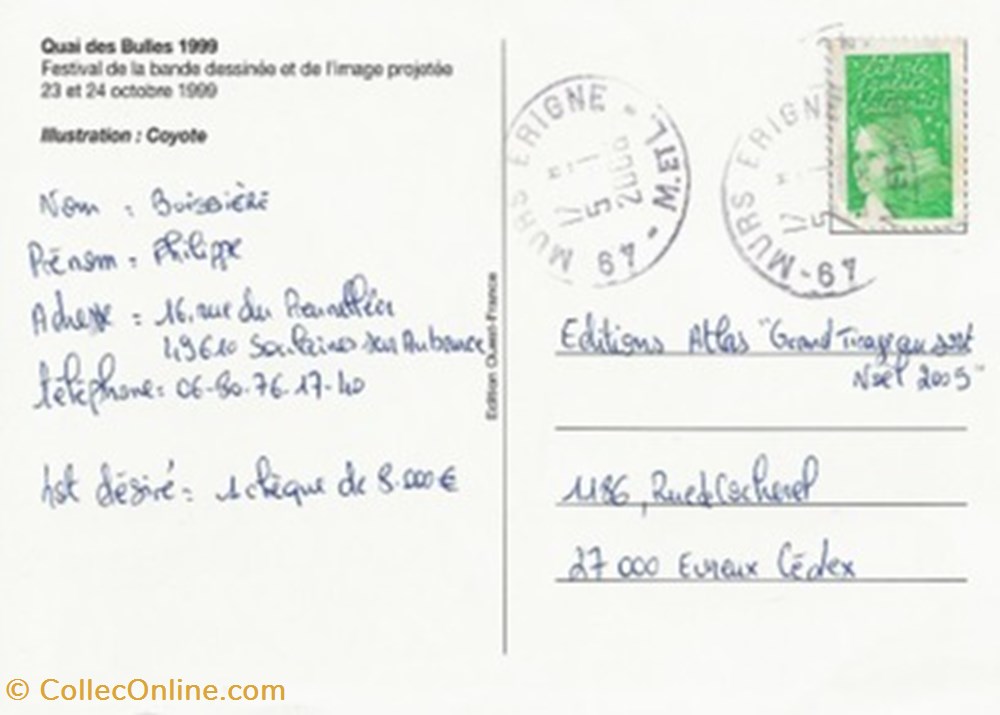 Quai des Bulles 1999
Festival de la bande dessinée et de l'image projetée
23 et 24 octobre 1999
Illustration : Coyote
Nom : Boissière
Prénom : Philippe
Adresse : 16, rue du
49610 Soulaines sur Aubance
téléphone : 06-80-76-17-40
Lot désiré : 1 chèque de 8.000 €
Edition Ouest-France
MURS ERIGNE - M.ETL. - 49
17 H
5 - 1
2006
MURS ERIGNE
49
17
5
Editions Atlas "Grand Tirage au sort
Noël 2005"
1186, Rue de Cocherel
27 000 Evreux Cédex
© CollecOnline.com